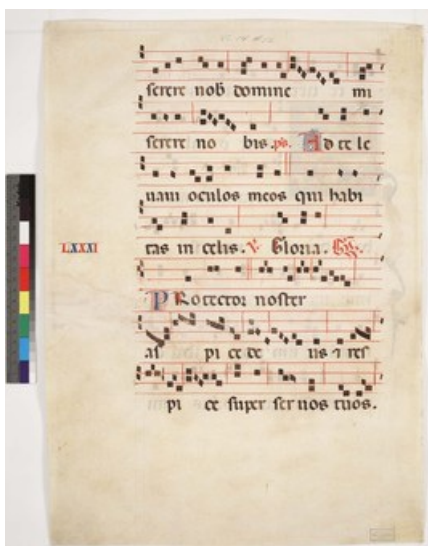 serere nob domine mi
serere no bis. ps. Ad te le
uaui oculos meos qui habi
tas in celis. V. Gloria.
LXXXI
PRotector noster
as pi ce de us ⁊ res
pi ce super ser uos tuos.